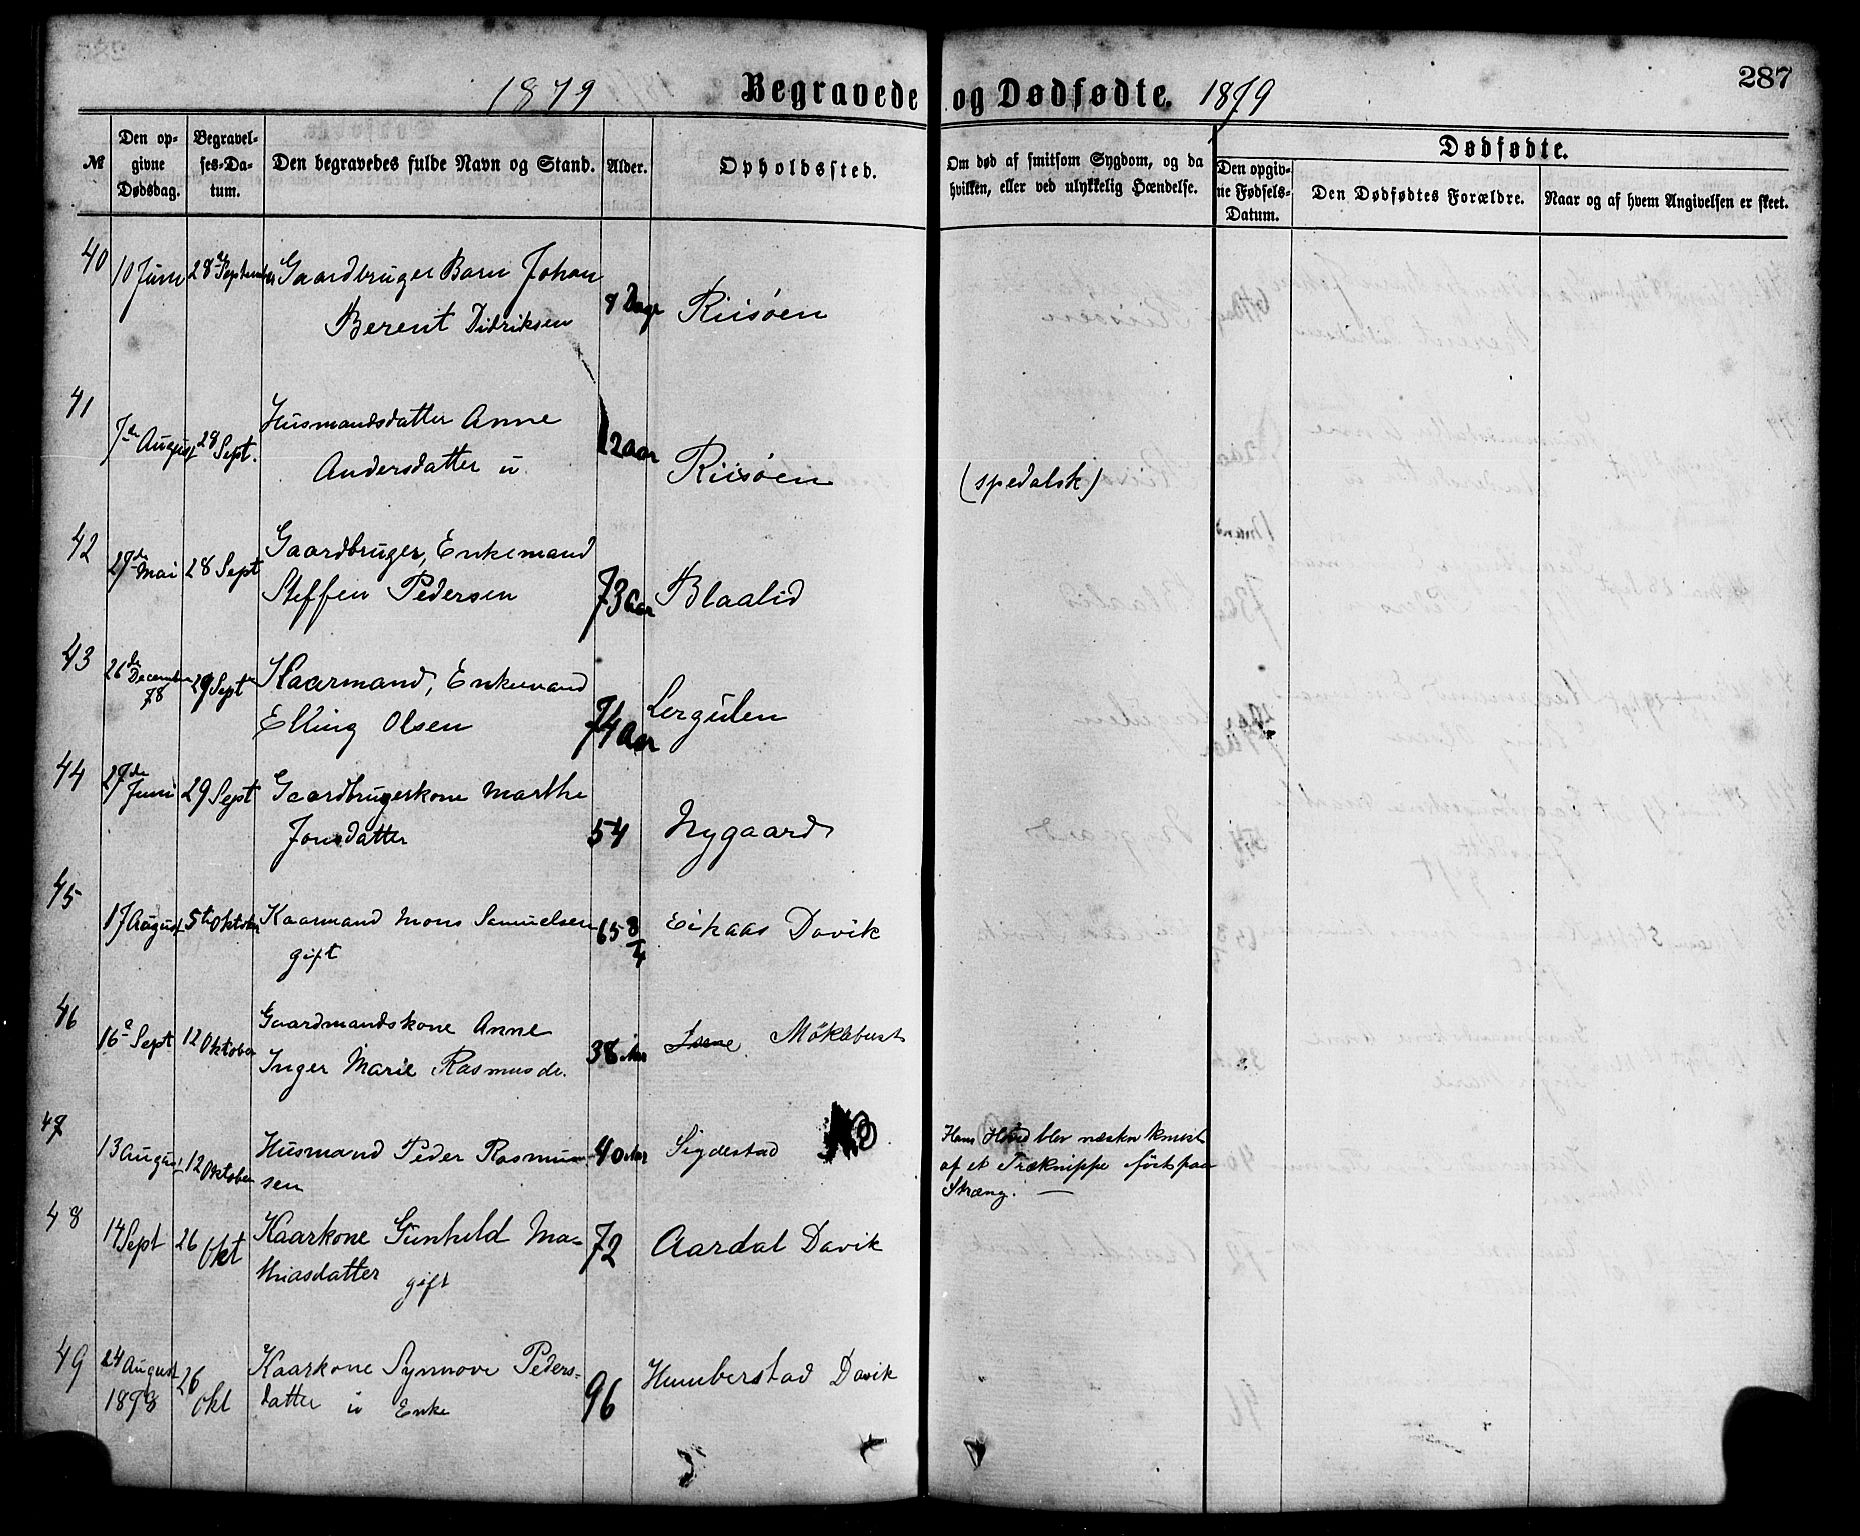 287
1879 Begravede og Dødfødte. 1879
№
Den op-
givne
Dødsdag.
Begravel-
ses-Da-
tum.
Den begravedes fulde Navn og Stand.
Alder.
Opholdssted.
Om død af smitsom Sygdom, og da
hvilken, eller ved ulykkelig Hændelse.
Dødfødte.
Den opgiv-
ne Fødsels-
Datum.
Den Dødfødtes Forældre.
Naar og af hvem Angivelsen er skeet.
40 10 Juni 28 September Gaardbruger Barn Johan
Berent Didriksen
8 Dage Riisøen
41
7de August 28 Sept. Husmandsdatter Anne
Andersdatter u.
12 aar Riisøen (spedalsk)
42
27de Mai 28 Sept Gaardbruger, Enkemand
Steffen Pedersen 73 aar Blaalid
43
26de December
78
29 Sept Kaarmand, Enkemand
Elling Olsen 74 aar Lergulen
44 27de
Juni 29 Sept Gaardbrugerkone Marthe
Jonsdatter 54 Nygaard
45
17 August 5te Oktober Kaarmand Mons Samuelsen
gift
65 3/4 Eikaas Davik
46
16de Sept 12 Oktober Gaardmandskone Anne
Inger Marie Rasmusde. 38 Aar Møklebust
47
13 August 12 Oktober Husmand Peder Rasmus-
sen
40 Aar Sigdestad Hans Hoved blev næsten knust
af et Træknippe ført paa
Stræng.
48
14 Sept 26 Okt Kaarkone Gunhild Ma-
thiasdatter gift
72 Aardal Davik
49 24 August
1878
26
Okt Kaarkone Synnove Peders-
datter u Enke
96 Humberstad Davik